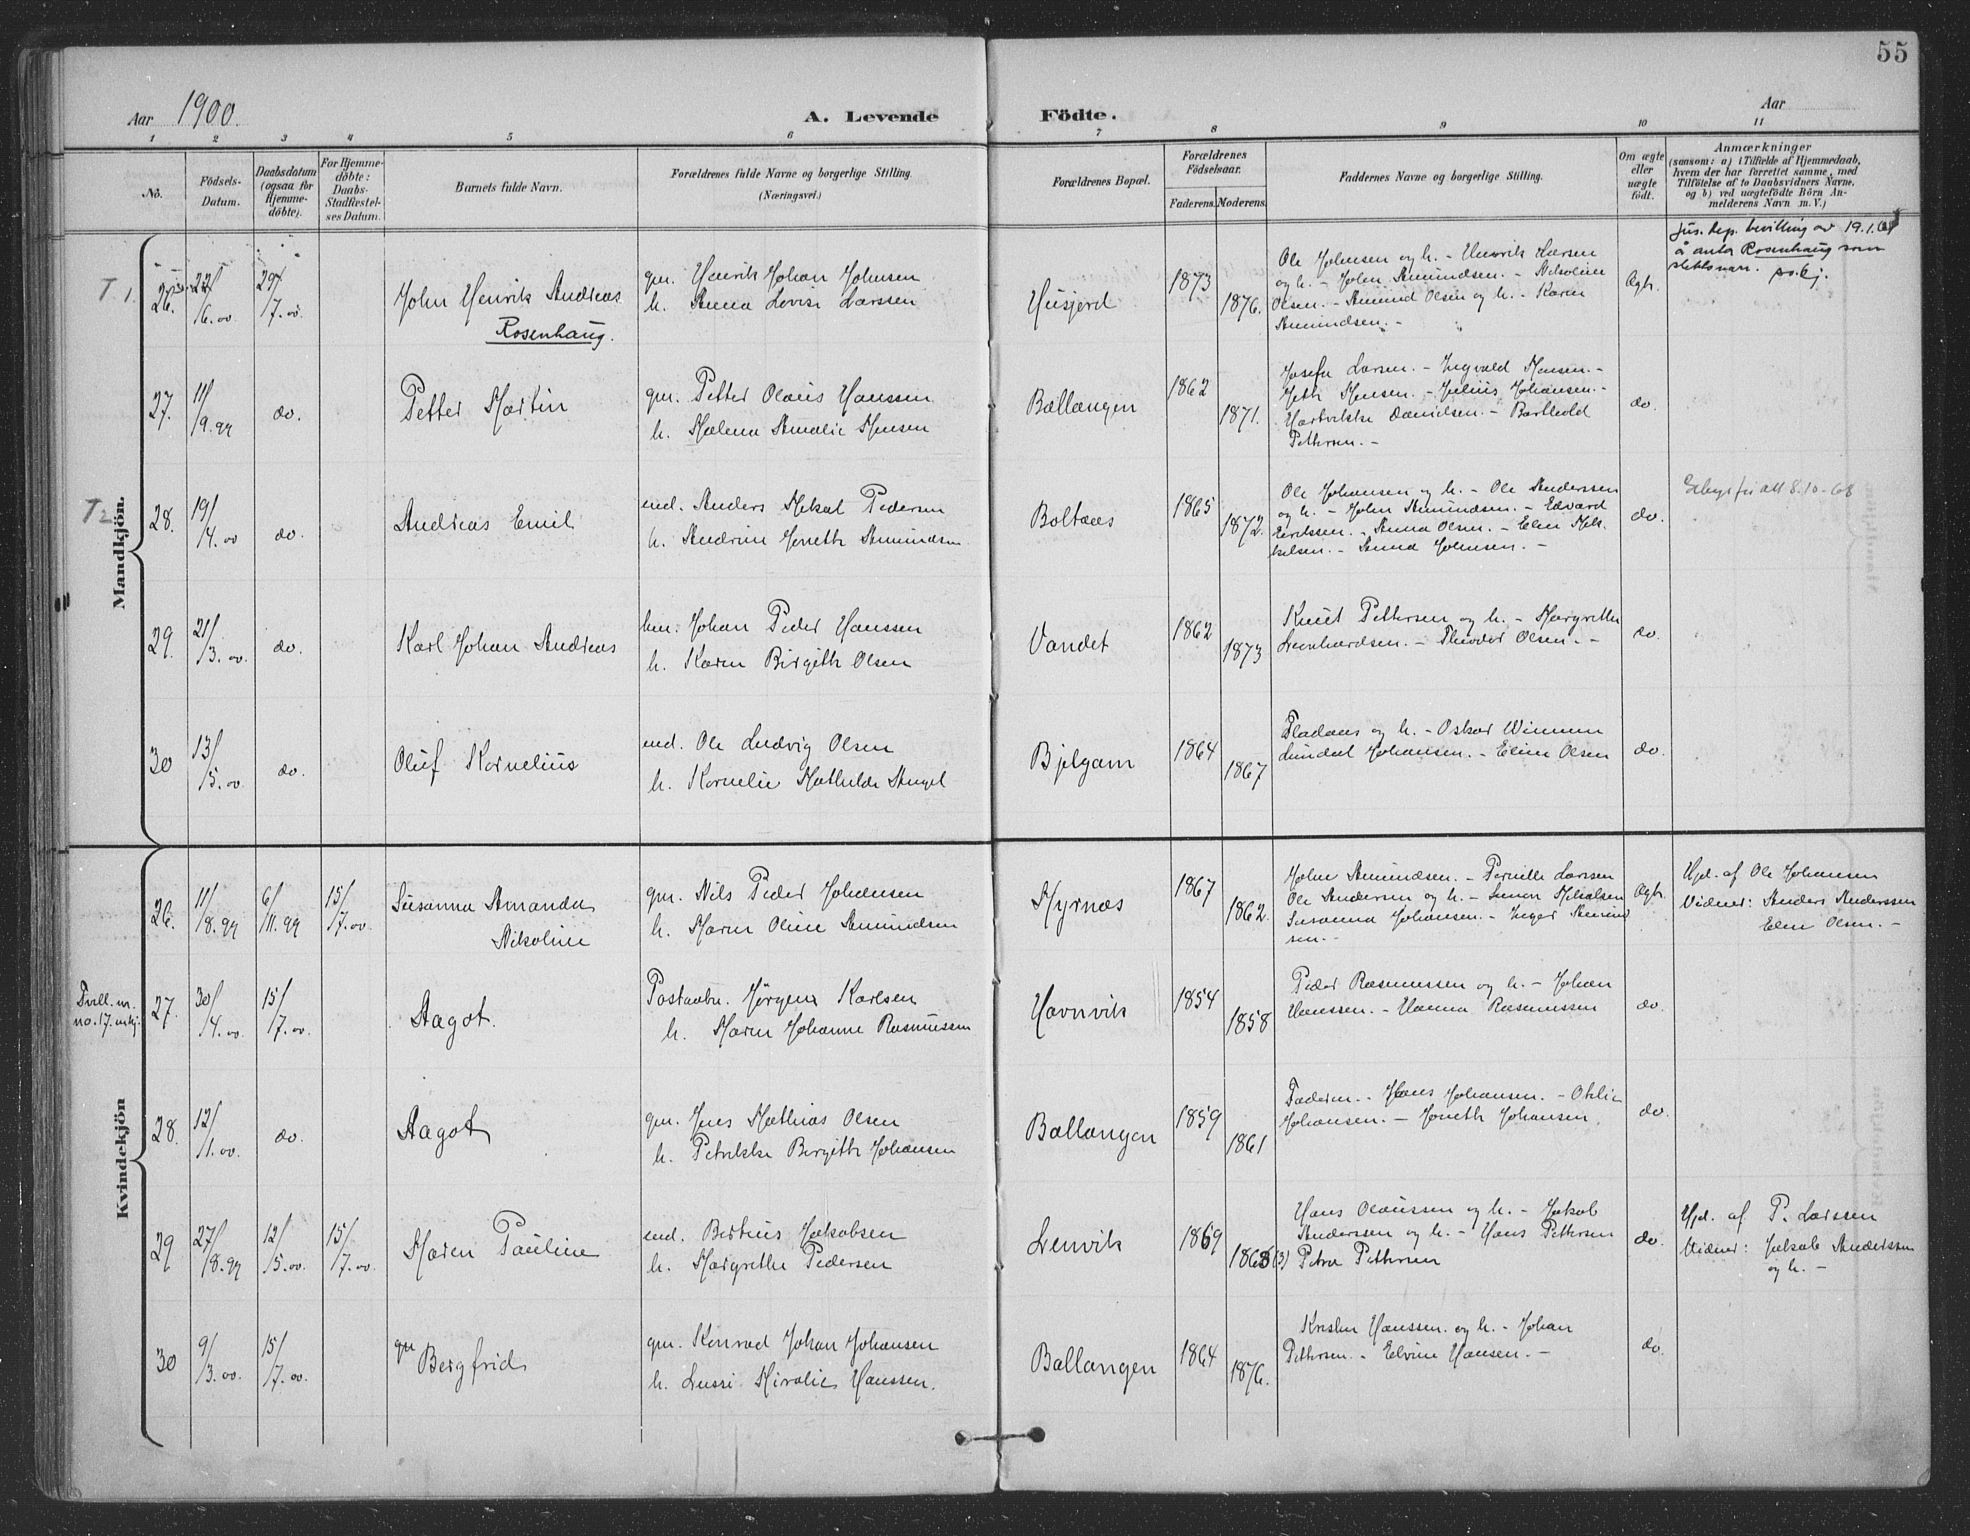 55
Aar 1900.
A. Levende Födte.
Aar
1 2 3 4 5 6 7 8 9 10 11
No.
Födsels-Datum.
Daabsdatum (ogsaa for Hjemme-döbte).
For Hjemme-döbte: Daabs-Stadfæstel-ses Datum.
Barnets fulde Navn.
Forældrenes fulde Navne og borgerlige Stilling.
(Næringsvei.)
Forældrenes Bopæl.
Forældrenes Födselsaar.
Faderens. Moderens.
Faddernes Navne og borgerlige Stilling.
Om ægte eller uægte födt.
Anmærkninger
(saasom: a) i Tilfælde af Hjemmedaab, hvem der har forrettet samme, med Tilföielse af to Daabsvidners Navne, og b) ved uægtefödte Börn An-melderens Navn m. V.)
Mandkjön.
T 1.
26.
22/6.00
29/7.00
John Henrik Andreas
Rosenhaug.
gm. Henrik Johan Johnsen
h. Anna Lovise Larssen
Husjord
1873
1876.
Ole Johnsen og h. - Henrik Larsen
og h. - John Amundsen. - Nikoline
Olsen. - Amund Olsen og h. - Karen
Amundsen. -
Ægte.
Jus. dep. bevilling av 19.1.
å anta Rosenhaug som
slektsnavn.
27.
11/9.99
do.
Petter Martin
gm. Petter Olaus Hanssen
h. Malena Amalie Jensen
Ballangen
1862
1871.
Josefa Larsen. - Ingvald Jensen. -
Jensen. - Julius Johansen. -
Danielsen. - Barthold
Pettersen. -
do.
T 2
28.
19/4.00
do.
Andreas Emil
ind. Anders Mikal Pedersen
h. Andrine Jonette Amundsen
Boltaas
1865
1872.
Ole Johansen og h. - Ole Anderssen
og h. - John Amundsen. - Edvard
Erikssen. - Anna Olsen. - Elen Mik-
kelsen. - Anna Johnsen. -
do.
8.10-68
29.
21/3.00
do.
Karl Johan Andreas
Johan Peder Hanssen
h. Karen Birgitte Olsen
Vandet
1862
1873
Knut Pettersen og h. - Margrethe
Leonhardsen. - Theodor Olsen. -
do.
30
13/5.00
do.
Oluf Kornelius
ind. Ole Ludvig Olsen
h. Kornelie Mathilde Angel
Bjelgam
1864
1867
og h. - Oskar
Johansen. - Eline Olsen
do.
Kvindekjön
26.
11/8.99
6/11.99
15/7.00.
Susanna Amanda
Nikoline
gm. Nils Peder Johansen
h. Maren Oline Amundsen
Myrnæs
1867
1862.
John Amundsen. - Pernille Larssen
Ole Andersen og h. - Simon Mikalsen
Susanna Johansen. - Inger Amund
sen. -
Ægte.
Hjd. af Ole Johansen
Vidner: Anders Anderssen
Elen Olsen. -
Tvill. m.
no. 17. mkj.
27.
30/4.00
15/7.00.
Aagot.
Postaabn. Jørgen Karlsen
h. Maren Johanne Rasmussen
Havnvik
1854
1858
Peder Rasmussen og h. - Johan
Hanssen. - Hanna Rasmussen
do.
28.
12/1.00
do.
Aagot
gm. Jens Mathias Olsen
h. Petrikke Birgitte Johansen
Ballangen
1859
1861
Faderen. - Hans Johansen. - Otilie
Johansen. - Jonette Johansen.
do.
29
27/8.99
12/5.00.
15/7.00.
Maren Pauline
ind. Bertius Jakobsen
h. Margrethe Pedersen
Lenvik
1869
186 (3)
Hans Olaussen og h. - Jakob
Anderssen og h. - Hans Pettersen
Petra Pettersen
do.
Hjd. af P. Larssen
Vidner: Jakob Anderssen
og h. -
30
9/3.00.
15/7.00.
Bergfrid
gm. Konrad Johan Johansen
h. Lussi Miralie Hanssen.
Ballangen
1864
1876.
Kristen Hanssen og h. - Johan
Pettersen. - Elvine Hansen. -
do.